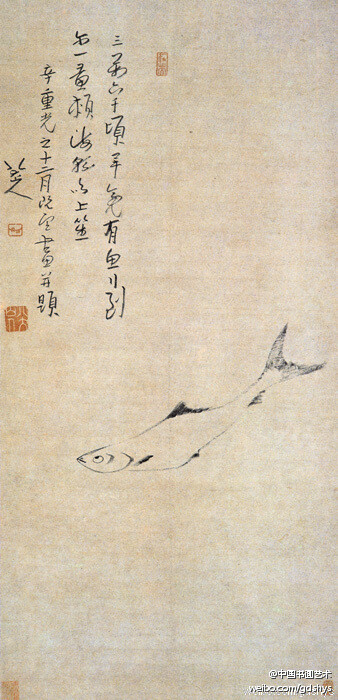 三萬六千頃畢竟有魚行到
尔一黃頰海綿上笙
辛重光之十二月既望畫并題
八大山人
@中国书画艺术
weibo.com/gdshys